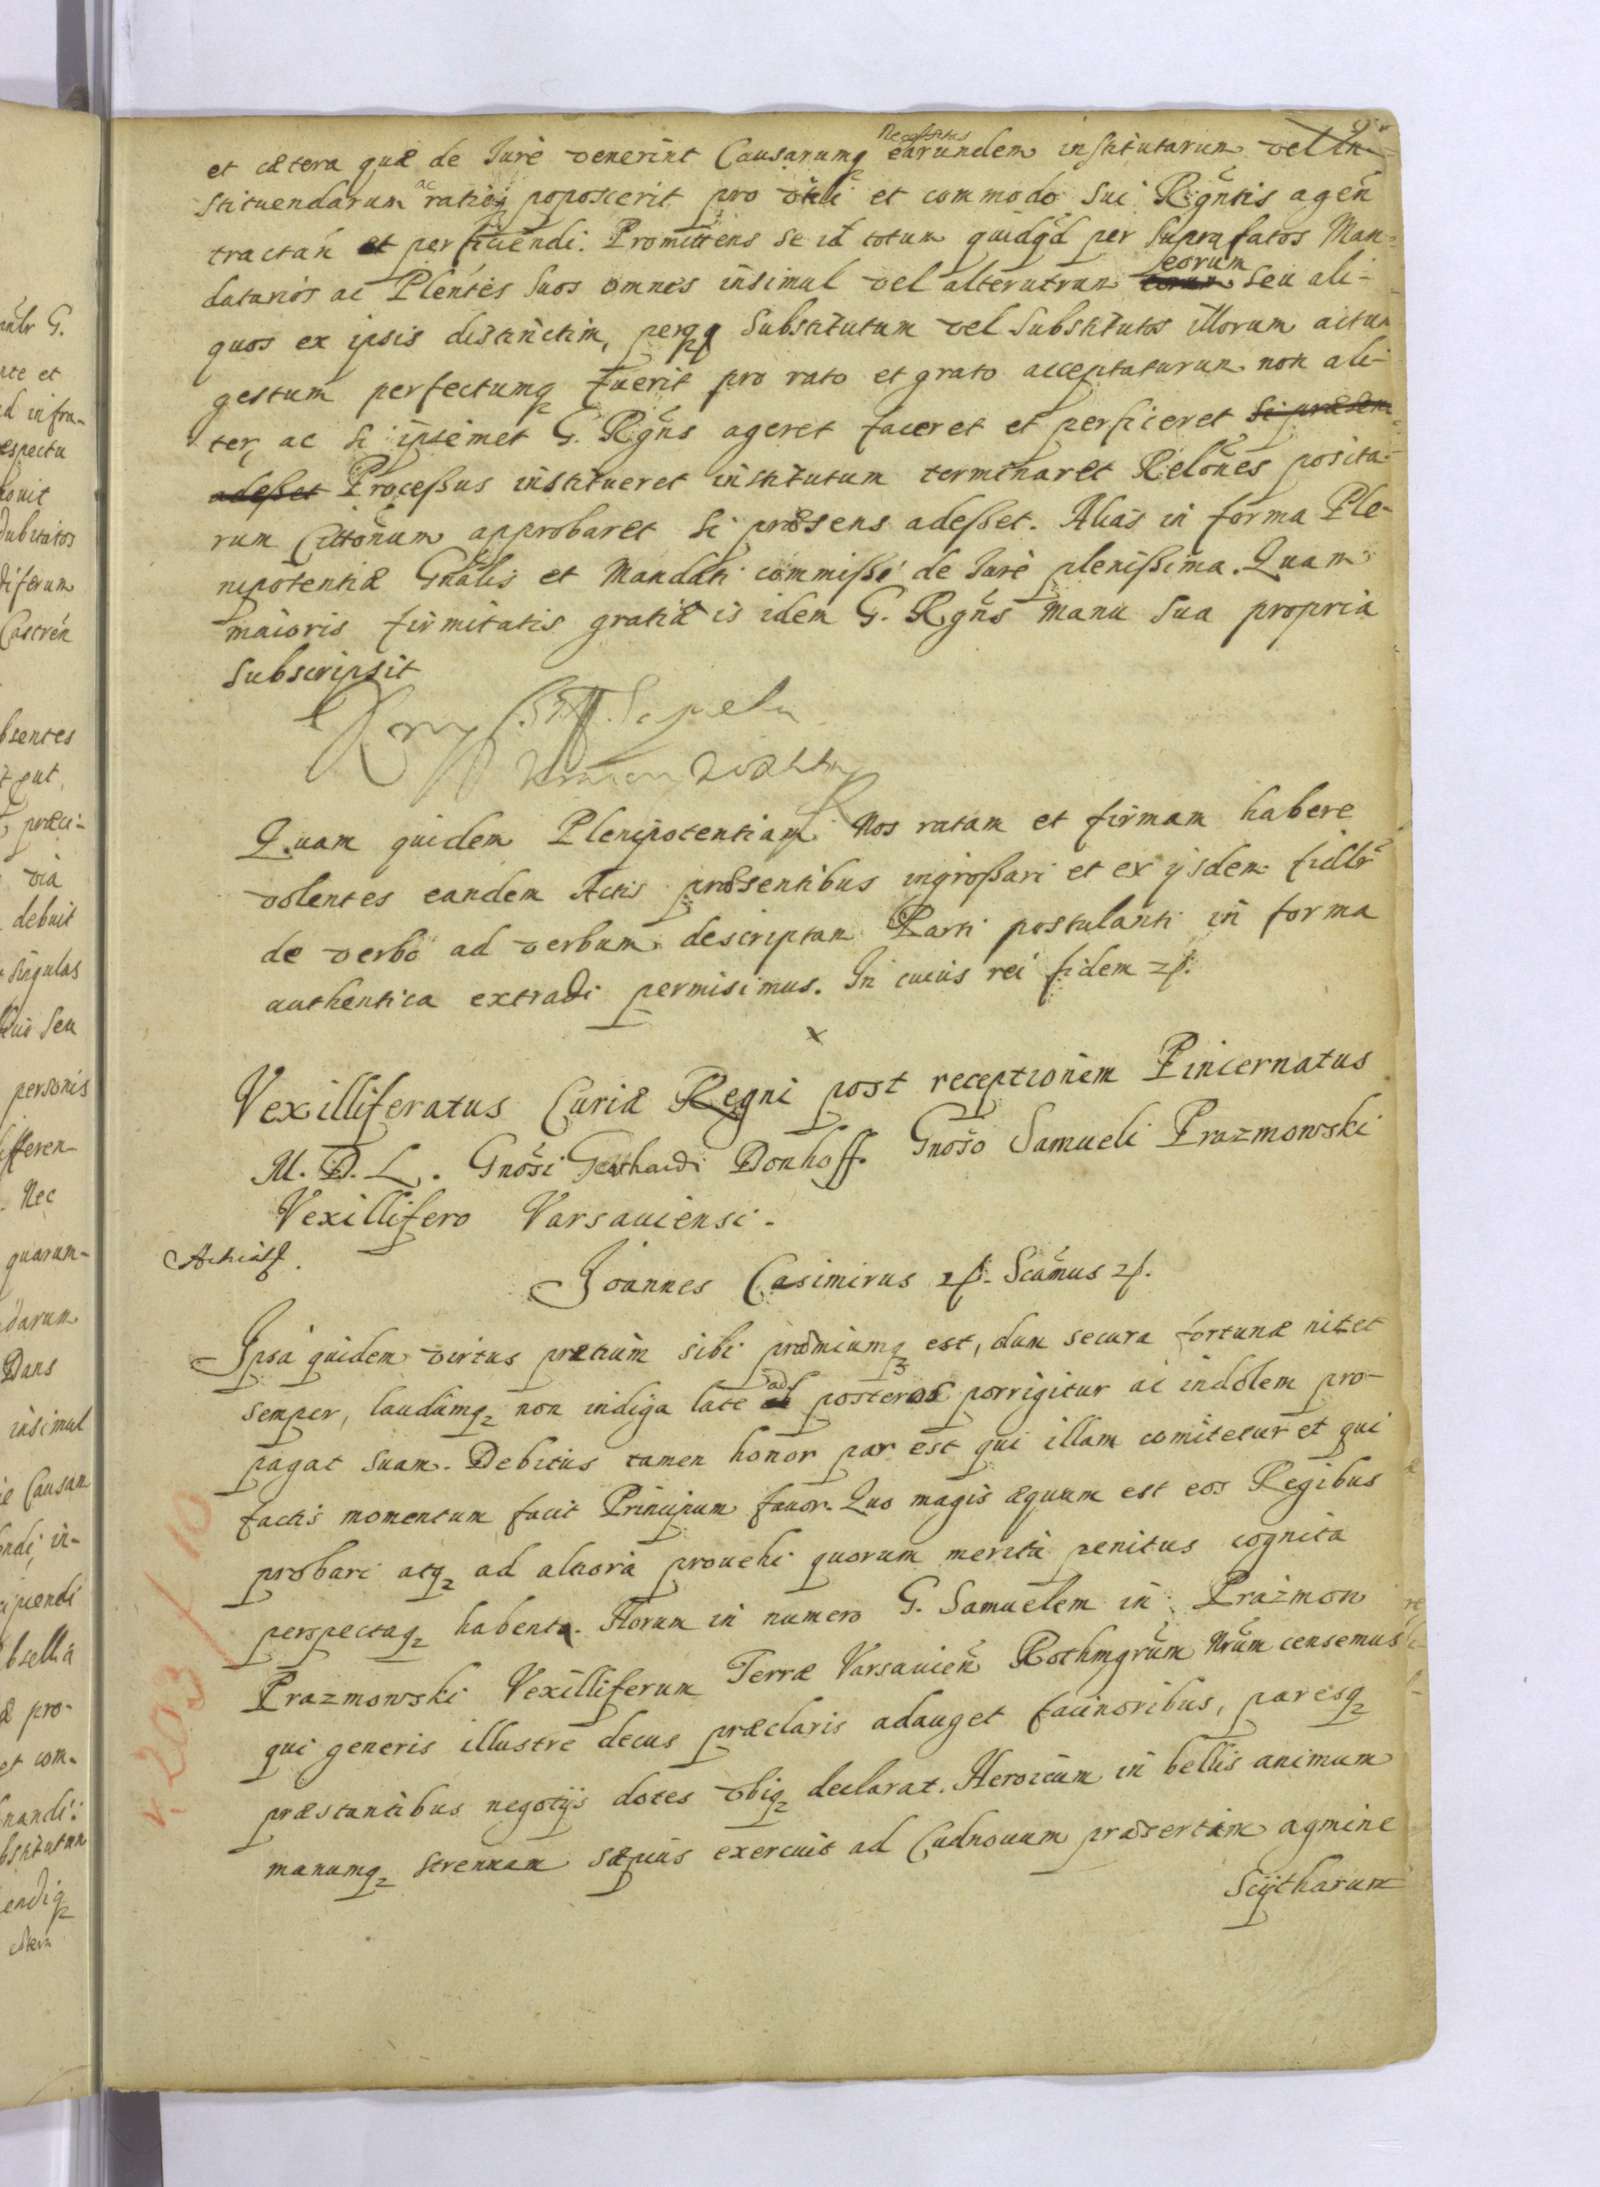 et cætera quæ de Jure venerint Causarumq Necessitas earundem institutarum vel in-
stituendarum ac ratioq poposcerit pro utili et commodo sui Rgñtis agen̄
tractan̄ et perficiendi. Promittens se id totum quidqd per suprafatos Man-
datarios ac Plentes suos omnes insimul vel alterutrum eorum seu ali-
quos ex ipsis distinctim, perqq substitutum vel substitutos illorum actum
gestum perfectumq fuerit pro rato et grato acceptaturum non ali-
ter, ac si ipsemet G. Rgñs ageret faceret et perficeret si præsens
adesset Processus institueret institutum terminaret Relõnes posita-
rum Citõnum approbaret si præsens adesset. Alias in forma Ple-
nipotentiæ Gnãlis et Mandati commissi de Jure plenissima. Quam
maioris firmitatis gratiæ is idem G. Rgñs manu sua propria
subscripsit
Quam quidem Plenipotentiam Nos ratam et firmam habere
volentes eandem Actis præsentibus ingrossari et ex ijsdem fidlr
de verbo ad verbum descriptam Parti postulanti in forma
authentica extradi permisimus. In cuius rei fidem
x
Vexilliferatus Curiæ Regni post receptionem Pincernatus
M. D. L. Gnõsi Gerhardi Donhoff. Gnõso Samueli Prazmowski
Vexillifero Varsaviensi.
Joannes Casimirus Scãmus
Ipsa quidem virtus pretium sibi præmiumq est, dum secura fortunæ nitet
semper, laudumq non indiga late ad posteros porrigitur ac indolem pro-
pagat suam. Debitus tamen honor par est qui illam comitetur et qui
factis momentum facit Principum favor. Quo magis æquum est eos Regibus
probari atq ad altiora provehi quorum merita penitus cognita
perspectaq habent. Horum in numero G. Samuelem in Prażmow
Prazmowski Vexilliferum Terræ Varsavien̄ Rothmgrũm Nrũm censemus
qui generis illustre decus præclaris adauget facinoribus, paresq
præstantibus negotijs dotes ubiq declarat. Heroicum in bellis animum
manumq strenuam sæpius exercuit ad Cudnouum præsertim agmine
Scÿtharum
203/10